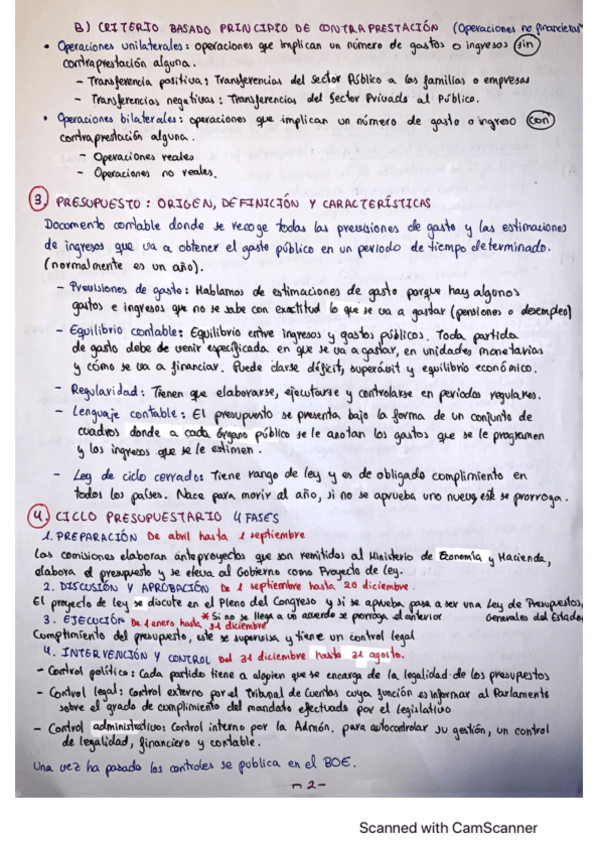 B) CRITERIO BASADO PRINCIPIO DE CONTRAPRESTACIÓN (Operaciones no financieras)
• Operaciones unilaterales: operaciones que implican un número de gastos o ingresos sin
contraprestación alguna.
- Transferencia positiva: Transferencias del Sector Público a las familias o empresas
- Transferencias negativas: Transferencias del Sector Privado al Público.
• Operaciones bilaterales: operaciones que implican un número de gasto o ingreso con
contraprestación alguna.
- Operaciones reales
- Operaciones no reales.
3. PRESUPUESTO: ORIGEN, DEFINICIÓN Y CARACTERÍSTICAS
Documento contable donde se recoge todas las previsiones de gasto y las estimaciones
de ingresos que va a obtener el gasto público en un periodo de tiempo determinado.
(normalmente es un año).
- Previsiones de gasto: Hablamos de estimaciones de gasto porque hay algunos
gastos e ingresos que no se sabe con exactitud lo que se va a gastar (pensiones o desempleo)
- Equilibrio contable: Equilibrio entre ingresos y gastos públicos. Toda partida
de gasto debe de venir especificada en que se va a gastar, en unidades monetarias
y cómo se va a financiar. Puede darse déficit, superávit y equilibrio económico.
- Regularidad: Tienen que elaborarse, ejecutarse y controlarse en periodos regulares.
- Lenguaje contable: El presupuesto se presenta bajo la forma de un conjunto de
cuadros donde a cada órgano público se le anotan los gastos que se le programen
y los ingresos que se le estimen.
- Ley de ciclo cerrado: Tiene rango de ley y es de obligado complimiento en
todos los países. Nace para morir al año, si no se aprueba uno nuevo este se prorroga.
4. CICLO PRESUPUESTARIO 4 FASES
1. PREPARACIÓN De abril hasta 1 septiembre
Las comisiones elaboran anteproyectos que son remitidos al Ministerio de Economía y Hacienda,
elabora el presupuesto y se eleva al Gobierno como Proyecto de Ley.
2. DISCUSIÓN Y APROBACIÓN De 1 septiembre hasta 20 diciembre.
El proyecto de ley se discute en el Pleno del Congreso y si se aprueba pasa a ser una Ley de Presupuestos
Generales del Estado
3. EJECUCIÓN De 1 enero hasta 31 diciembre * Si no se llega a un acuerdo se porroga el anterior
Cumplimiento del presupuesto, este se supervisa y tiene un control legal
4. INTERVENCIÓN Y CONTROL Del 31 diciembre hasta 31 agosto.
- Control político: Cada partido tiene a alguien que se encarga de la legalidad de los presupestos
- Control legal: Control externo por el Tribunal de Cuentas cuya función es informar al Parlamento
sobre el grado de complimiento del mandato efectuado por el legislativo
- Control administrativo: Control interno por la Admón. para autocontrolar su gestión, un control
de legalidad, financiero y contable.
Una vez ha pasado los controles se publica en el BOE.
- 2 -
Scanned with CamScanner